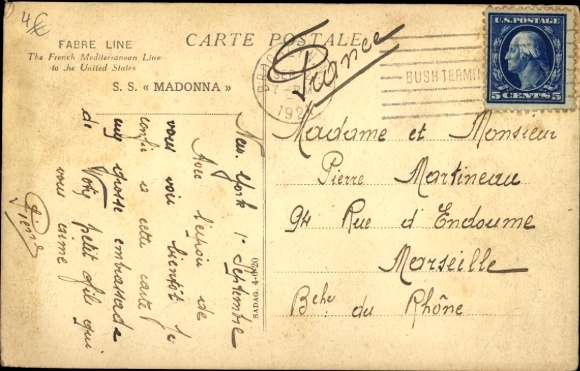 4€
FABRE LINE
The French Mediterranean Line
to the United States
S. S. « MADONNA »
CARTE POSTALE
France
BUSH TERMIN
U.S. POSTAGE
5 CENTS 5
New York 1r Septembre
Avec l'espoir de
vous voir bientôt je
confie a cette carte
une grosse embrassade
de Votre petit fils qui
vous aime
Pierre
SADAG. 4-1920
Madame et Monsieur
Pierre Martineau
94 Rue d'Endoume
Marseille
Bche du Rhône